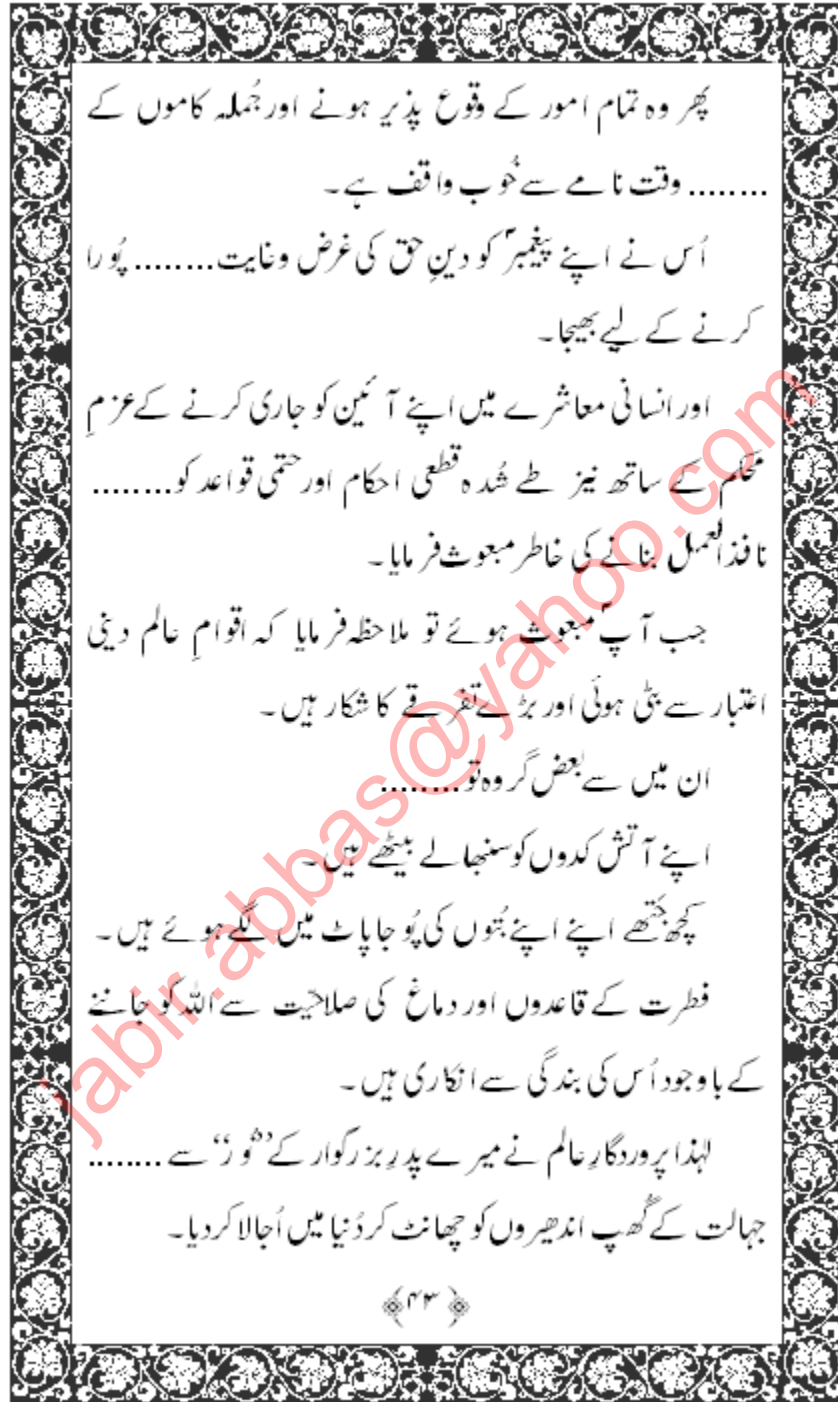 پھر وہ تمام امور کے وقوع پذیر ہونے اور جُملہ کاموں کے
........ وقت نامے سے خُوب واقف ہے۔
اُس نے اپنے پیغمبرؐ کو دینِ حق کی غرض وغایت........ پُورا
کرنے کے لیے بھیجا۔
اور انسانی معاشرے میں اپنے آئین کو جاری کرنے کے عزمِ
محکم کے ساتھ نیز طے شُدہ قطعی احکام اور حتمی قواعد کو........
نافذالعمل بنانے کی خاطر مبعوث فرمایا۔
جب آپؐ مبعوث ہوئے تو ملاحظہ فرمایا کہ اقوامِ عالم دینی
اعتبار سے بٹی ہوئی اور بڑے تفرقے کا شکار ہیں۔
ان میں سے بعض گروہ تو........
اپنے آتش کدوں کو سنبھالے بیٹھے ہیں۔
کچھ جُتھے اپنے اپنے بُتوں کی پُوجا پاٹ میں لگے ہوئے ہیں۔
فطرت کے قاعدوں اور دماغ کی صلاحیّت سے اللہ کو جاننے
کے باوجود اُس کی بندگی سے انکاری ہیں۔
لہٰذا پروردگارِ عالم نے میرے پدرِ بزرگوار کے ’’نُورُ‘‘ سے ........
جہالت کے گُھپ اندھیروں کو چھانٹ کر دُنیا میں اُجالا کردیا۔
﴿۴۳﴾
jabir.abbas@yahoo.com